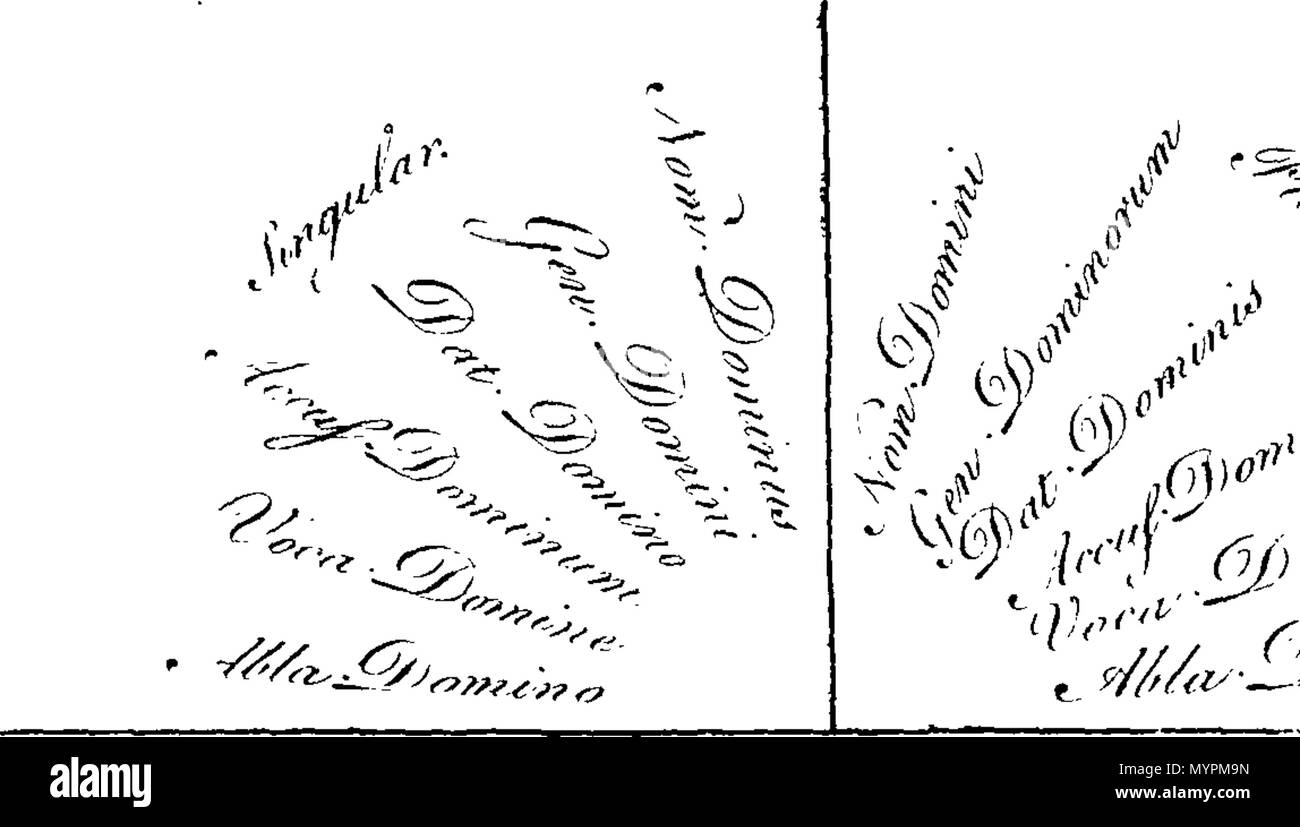 Singular.
Nom. Dominus
Gen. Domini
Dat. Domino
Accuſ. Dominum
Voca. Domine
Abla. Domino
Nom. Domini
Gen. Dominorum
Dat. Dominis
Accuſ. Dom
Voca. D
Abla. D
alamy
Image ID: MYPM9N
www.alamy.com